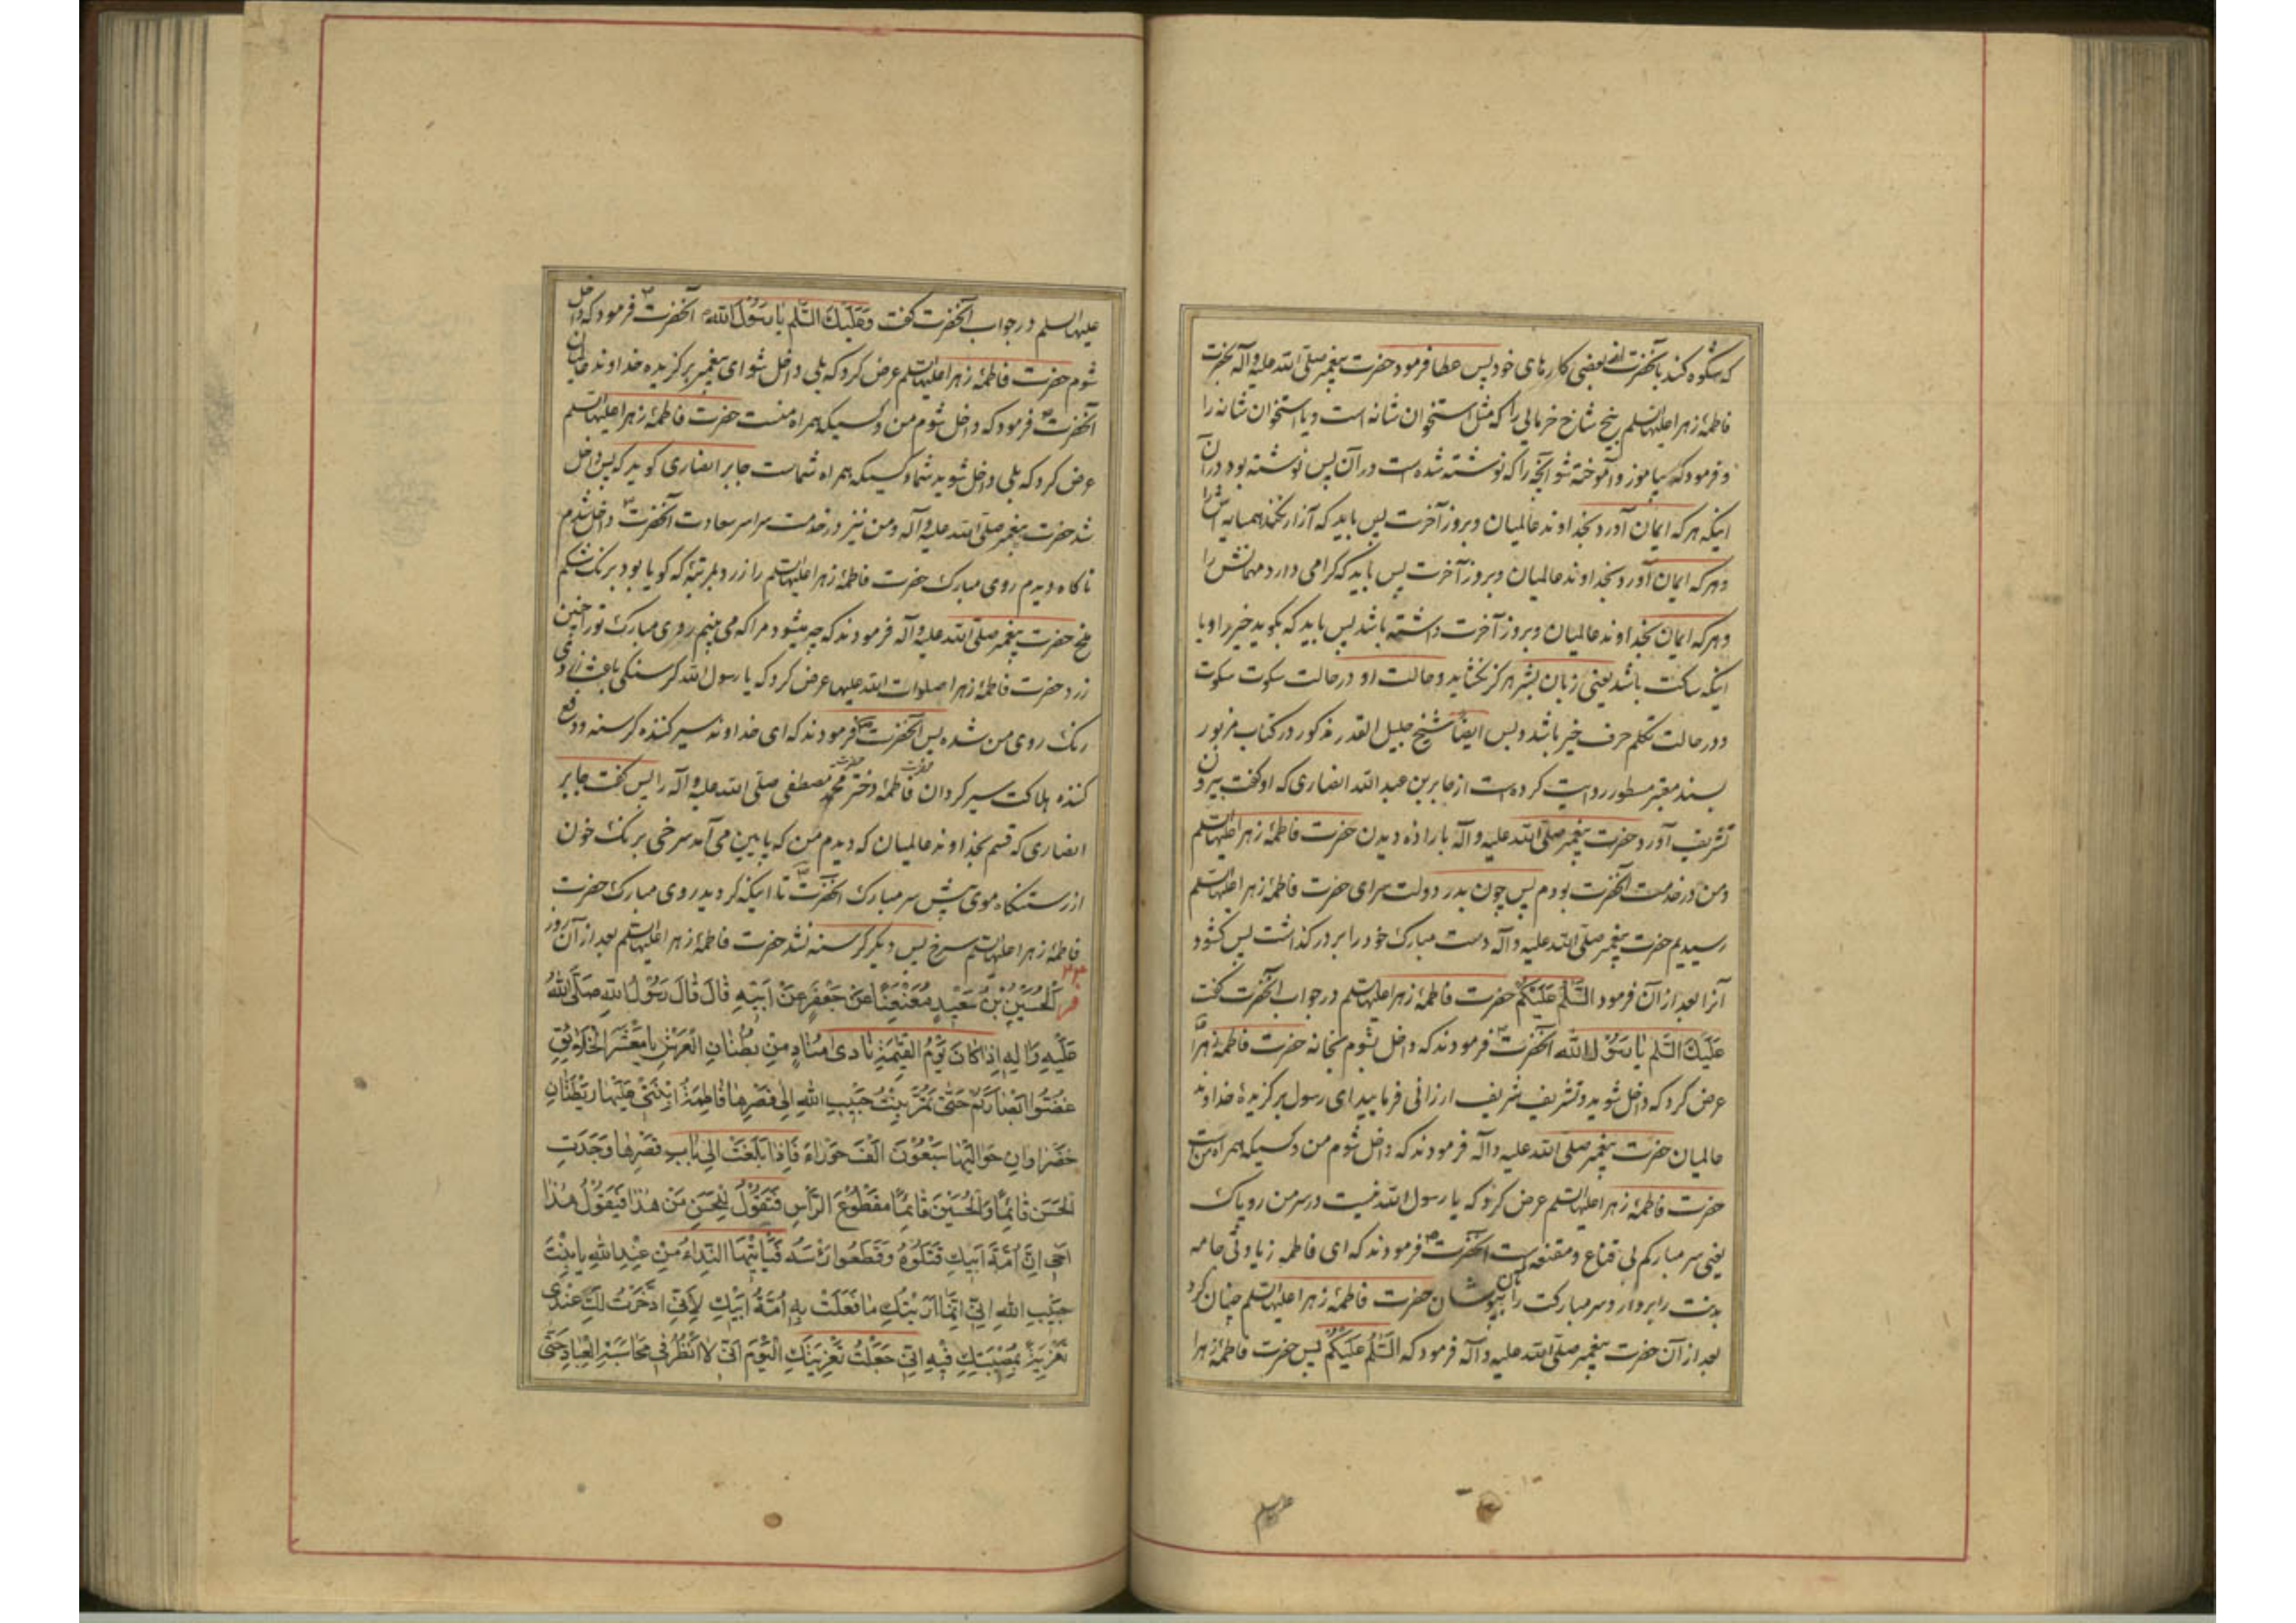 که شکوه کند بآنحضرت از بعضی کارهای خود پس عطا فرمود حضرت پیغمبر صلی الله علیه و آله بحضرت
فاطمهٔ زهرا علیها السلم بیخ شاخ خرمایی را که مثل استخوان شانه است و یا استخوان شانه را
و فرمود که بیاموز و آموخته شو آنچه را که نوشته شده است در آن پس نوشته بود در آن
اینکه هر که ایمان آورد بخداوند عالمیان و بروز آخرت پس باید که آزار نکند همسایه اش را
و هر که ایمان آورد بخداوند عالمیان و بروز آخرت پس باید که گرامی دارد مهمانش را
و هر که ایمان بخداوند عالمیان و بروز آخرت داشته باشد پس باید که بگوید خیر را و یا
اینکه ساکت باشد یعنی زبان بشر هرگز نگشاید و حالت او در حالت سکوت سکوت
و در حالت تکلم حرف خیر باشد و بس ایضا شیخ جلیل القدر مذکور در کتاب مزبور
بسند معتبر مسطور روایت کرده است از جابر بن عبد الله انصاری که او گفت بیرون
تشریف آورد حضرت پیغمبر صلی الله علیه و آله باراده دیدن حضرت فاطمهٔ زهرا علیها السلم
و من در خدمت آنحضرت بودم پس چون بدر دولت سرای حضرت فاطمهٔ زهرا علیها السلم
رسیدیم حضرت پیغمبر صلی الله علیه و آله دست مبارک خود را بر در گذاشت پس گشود
آنرا بعد از آن فرمود السَّلم عَلَیکُم حضرت فاطمهٔ زهرا علیها السلم در جواب آنحضرت گفت
عَلَیكَ السَّلم یا رَسُولَ الله آنحضرت ص فرمودند که داخل بشوم بخانه حضرت فاطمهٔ زهرا
عرض کرد که داخل شوید و تشریف شریف ارزانی فرمایید ای رسول برگزیدهٔ خداوند
عالمیان حضرت پیغمبر صلی الله علیه و آله فرمودند که داخل شوم من و کسیکه همراه من است
حضرت فاطمهٔ زهرا علیها السلم عرض کرد که یا رسول الله نیست در سر من روپاک
یعنی سر مبارکم بی قناع و مقنعه است آنحضرت ص فرمودند که ای فاطمه زیادتی جامه
بدنت را بردار و سر مبارکت را بآن بپوشان حضرت فاطمهٔ زهرا علیها السلم چنان کرد
بعد از آن حضرت پیغمبر صلی الله علیه و آله فرمود که السَّلمُ عَلَیکُم پس حضرت فاطمهٔ زهرا
علیها السلم
علیها السلم در جواب آنحضرت گفت وَعَلَیكَ السَّلم یا رَسُولَ الله آنحضرت ص فرمود که داخل
شوم حضرت فاطمهٔ زهرا علیها السلم عرض کرد که بلی داخل شو ای پیغمبر برگزیده خداوند عالمیان
آنحضرت ص فرمود که داخل شوم من و کسیکه همراه منست حضرت فاطمهٔ زهرا علیها السلم
عرض کرد که بلی داخل شوید شما و کسیکه همراه شماست جابر انصاری گوید که پس داخل
شد حضرت پیغمبر صلی الله علیه و آله و من نیز در خدمت سراسر سعادت آنحضرت ص داخل شدم
ناگاه دیدم روی مبارک حضرت فاطمهٔ زهرا علیها السلم را زرد بمرتبهٔ که گویا بود برنگ شکم
ملخ حضرت پیغمبر صلی الله علیه و آله فرمودند که چه میشود مرا که می بینم روی مبارک تو را چنین
زرد حضرت فاطمهٔ زهرا صلوات الله علیها عرض کرد که یا رسول الله گرسنگی باعث زردی
رنگ روی من شده پس آنحضرت ص فرمودند که ای خداوند سیر کننده گرسنه و دفع
کننده هلاکت سیر گردان حضرت فاطمهٔ دختر حضرت محمد مصطفی صلی الله علیه و آله را پس گفت جابر
انصاری که قسم بخداوند عالمیان که دیدم من که پایین می آمد سرخی برنگ خون
از رستنگاه موی پیش سر مبارک آنحضرت تا اینکه گردید روی مبارک حضرت
فاطمهٔ زهرا علیها السلم سرخ پس دیگر گرسنه نشد حضرت فاطمهٔ زهرا علیها السلم بعد از آن روز
فر الحُسَینُ بْنُ سَعیدٍ مُعَنعِنًا عَن جَعفَرٍ عَنْ اَبیهِ قالَ قالَ رَسُولُ اللهِ صَلَّی اللهُ
عَلَیهِ وَآلِهِ اِذا کانَ یَوْمُ القِیٰمَةِ نادیٰ مُنادٍ مِنْ بُطْنانِ العَرْشِ یا مَعْشَرَ الخَلائِقِ
غُضُّوا اَبْصارَکُمْ حَتّیٰ تَمُرَّ بِنْتُ حَبیبِ اللهِ اِلیٰ قَصْرِها فَاطِمَةُ ابْنَتی عَلَیْها رَیْطَتانِ
خَضْراوانِ حَوالَیْها سَبْعُونَ اَلْفَ حَوْراءَ فَاِذا بَلَغَتْ اِلیٰ بابِ قَصْرِها وَجَدَتِ
الحَسَنَ قائِمًا وَالحُسَیْنَ قائِمًا مَقْطُوعَ الرَّأْسِ فَتَقُولُ لِلحَسَنِ مَنْ هٰذا فَیَقُولُ هٰذا
اَخی اِنَّ اُمَّةَ اَبیكِ قَتَلُوهُ وَقَطَعُوا رَأْسَهُ فَیَأْتیهَا النِّداءُ مِنْ عِنْدِ اللهِ یا بِنْتَ
حَبیبِ اللهِ اِنّی اِنَّما اَرَیْتُكِ ما فَعَلَتْ بِهِ اُمَّةُ اَبیكِ لِاَنّی ادَّخَرْتُ لَكِ عِنْدی
تَعْزِیَةً بِمُصیبَتِكِ فیهِ اِنّی جَعَلْتُ تَعْزِیَتَكِ الیَوْمَ اَنّی لا اَنْظُرُ فی مُحاسَبَةِ العِبادِ حَتّیٰ